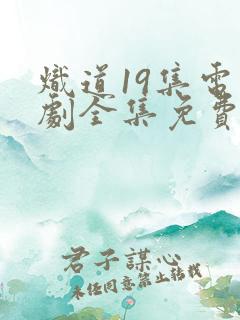 熾道19集電
劇全集免費
君子謀心
未经同意禁止转载